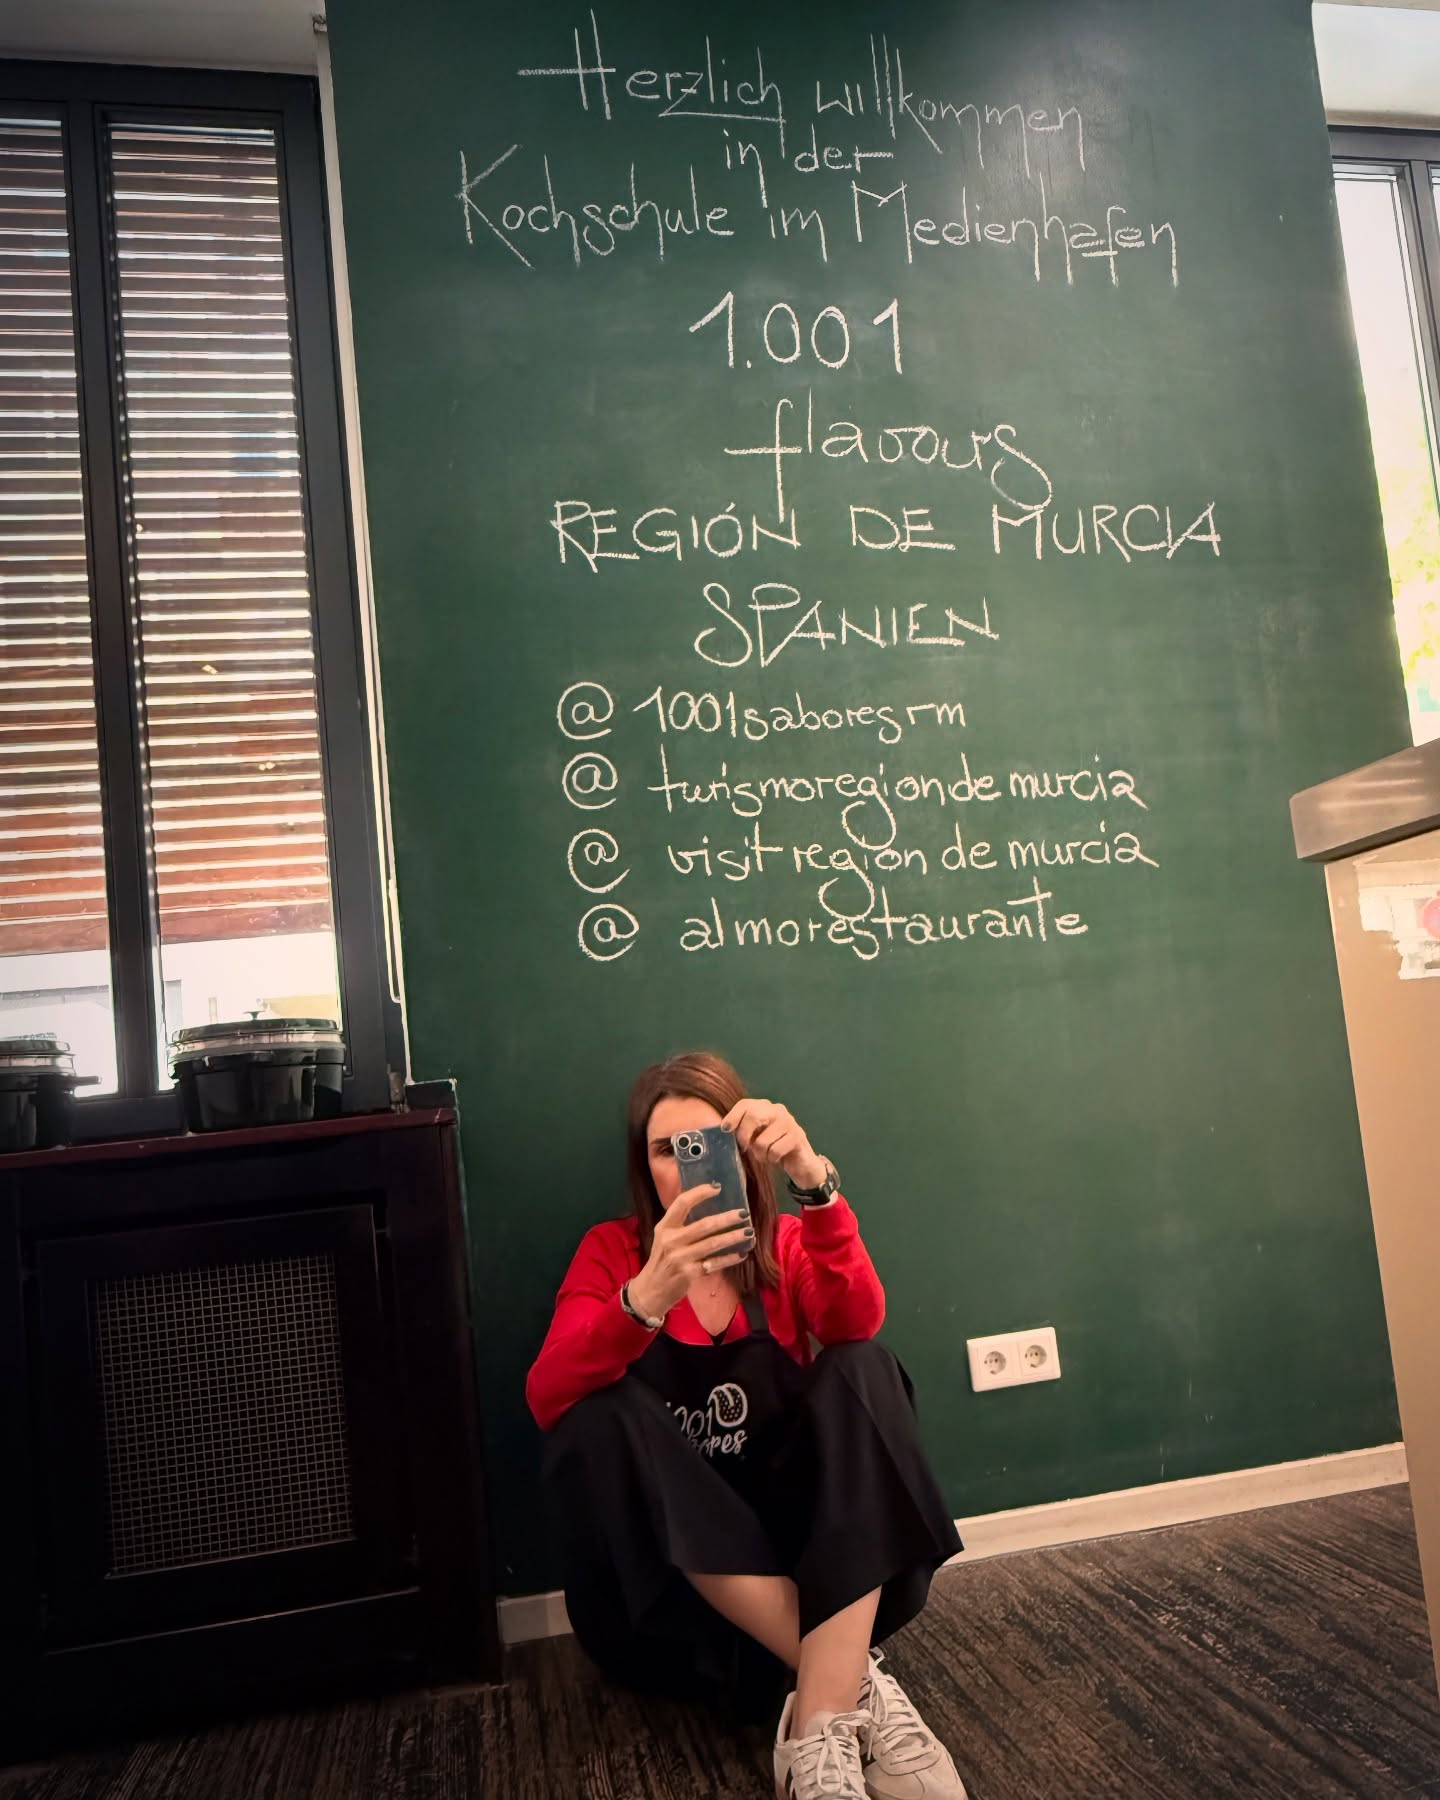 Herzlich willkommen
in der
Kochschule im Medienhafen
1.001
flavours
REGIÓN DE MURCIA
SPANIEN
@ 1001saboresrm
@ turismoregiondemurcia
@ visitregiondemurcia
@ almorestaurante
1001